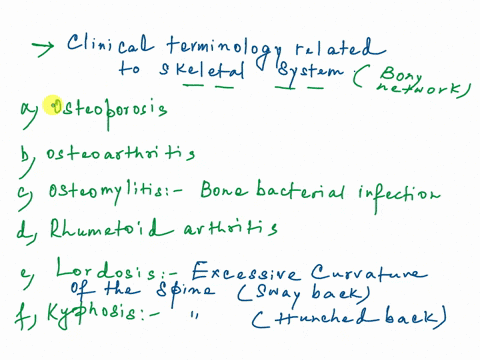 → Clinical terminology related
to skeletal system (Bony
network)
a) Osteoporosis
b) osteoarthritis
c) Osteomylitis:- Bone bacterial infection
d) Rhumetoid arthritis
e) Lordosis:- Excessive Curvature
of the Spine (Sway back)
f) Kyphosis:- " (Hunched back)